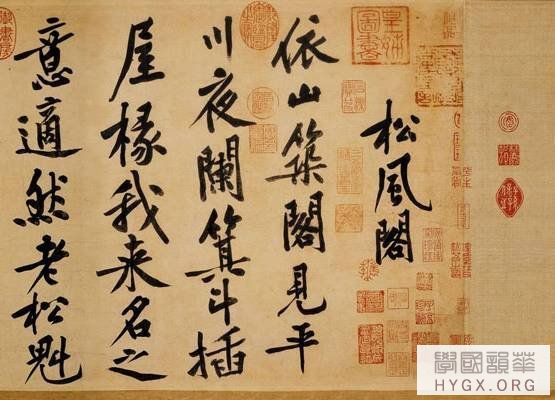 松風閣
依山築閣見平
川夜闌箕斗插
屋椽我来名之
意適然老松魁
學國韻華
HYGX.ORG